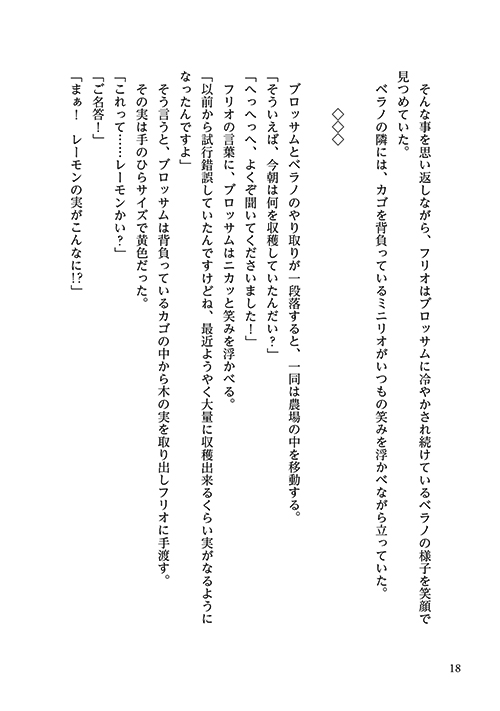 そんな事を思い返しながら、フリオはブロッサムに冷やかされ続けているベラノの様子を笑顔で
見つめていた。
　ベラノの隣には、カゴを背負っているミニリオがいつもの笑みを浮かべながら立っていた。
◇◇◇
　ブロッサムとベラノのやり取りが一段落すると、一同は農場の中を移動する。
「そういえば、今朝は何を収穫していたんだい？」
「へっへっへ、よくぞ聞いてくださいました！」
　フリオの言葉に、ブロッサムはニカッと笑みを浮かべる。
「以前から試行錯誤していたんですけどね、最近ようやく大量に収穫出来るくらい実がなるように
なったんですよ」
　そう言うと、ブロッサムは背負っているカゴの中から木の実を取り出しフリオに手渡す。
　その実は手のひらサイズで黄色だった。
「これって……レーモンかい？」
「ご名答！」
「まぁ！　レーモンの実がこんなに!?」
18